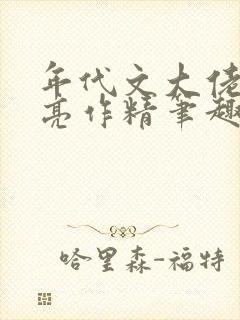 年代文大佬
亮作精笔趣
哈里森-福特